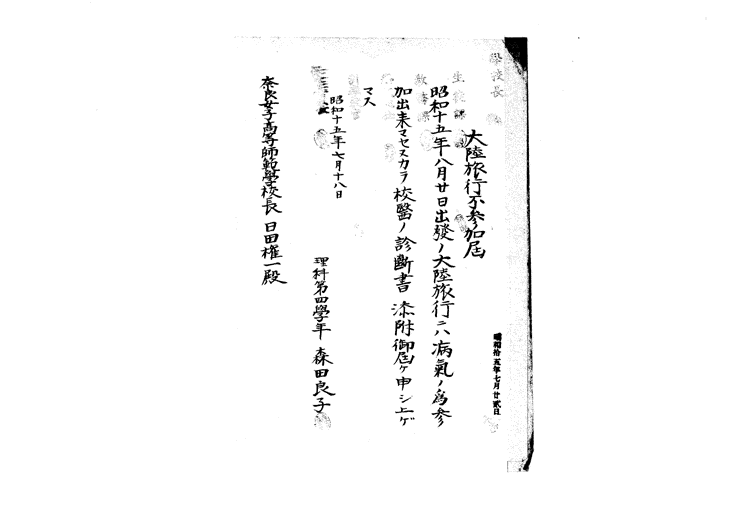 學校長
生徒課
教務課
昭和拾五年七月廿貳日
大陸旅行不参加屆
昭和十五年八月廿日出發ノ大陸旅行ニハ病氣ノ爲参
加出来マセヌカラ校醫ノ診斷書添附御屆ケ申シ上ゲ
マス
昭和十五年七月十八日
理科第四學年 森田良子
奈良女子高等師範學校長 日田権一殿